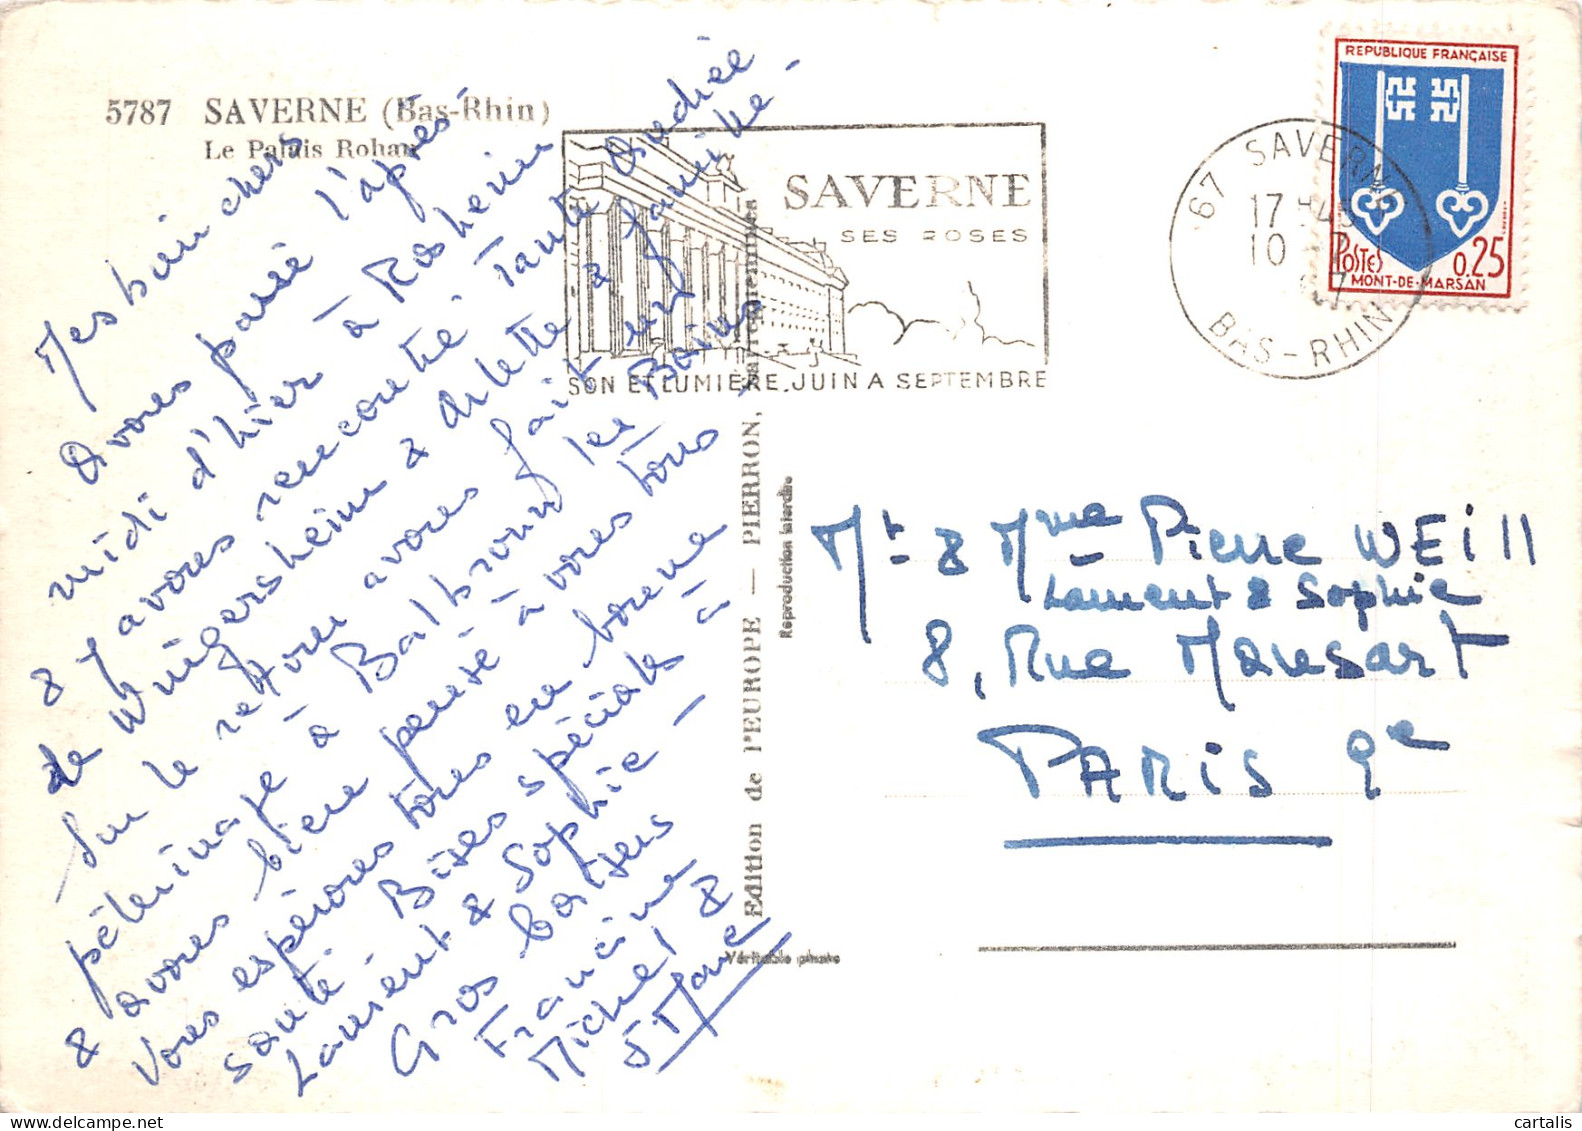 5787 SAVERNE (Bas-Rhin)
Le Palais Rohan
Mes bien chers
Avons passé l'après-
midi d'hier à Rosheim
& y avons rencontré Tante Andrée
de Wingersheim & Arlette & famille -
Sur le retour avons fait un
pélerinage à Balbronn les Bains
& avons bien pensé à vous tous
Vous espérons tous en bonne
santé. Bises spéciales à
Laurent & Sophie -
Gros baisers
Francine
Michel &
SAVERNE
SES ROSES
SON ET LUMIÈRE. JUIN A SEPTEMBRE
67 SAVERNE
17 H
10
BAS-RHIN
REPUBLIQUE FRANÇAISE
POSTES 0,25
MONT-DE-MARSAN
Edition de l'EUROPE — PIERRON, Sarreguemines
Reproduction interdite
Véritable photo
Mr & Mme Pierre WEill
Laurent & Sophie
8, Rue Mansart
PARIS 9e
cartalis